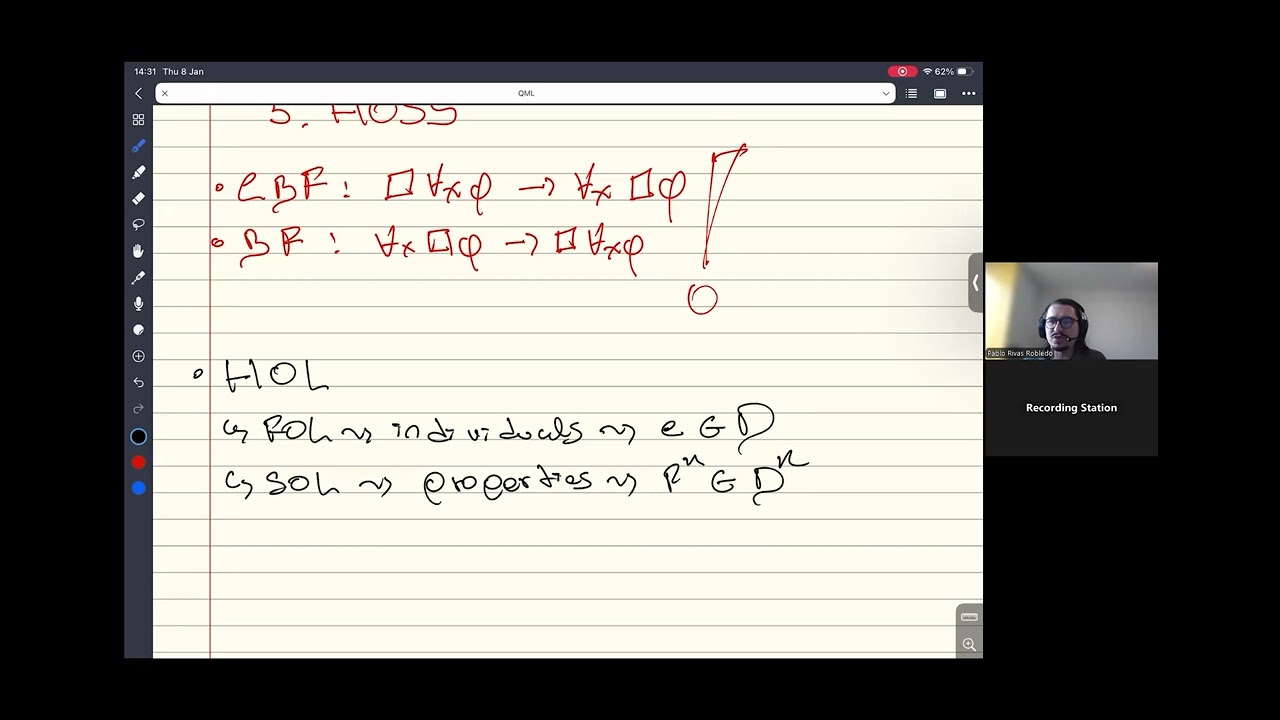 14:31 Thu 8 Jan
62%
QML
5. HOS5
• CBF: □∀xφ → ∀x□φ
• BF: ∀x□φ → □∀xφ
• HOL
↪ FOL ⇝ individuals ⇝ e ∈ D
↪ SOL ⇝ properties ⇝ Rⁿ ∈ Dⁿ
Pablo Rivas Robledo
Recording Station